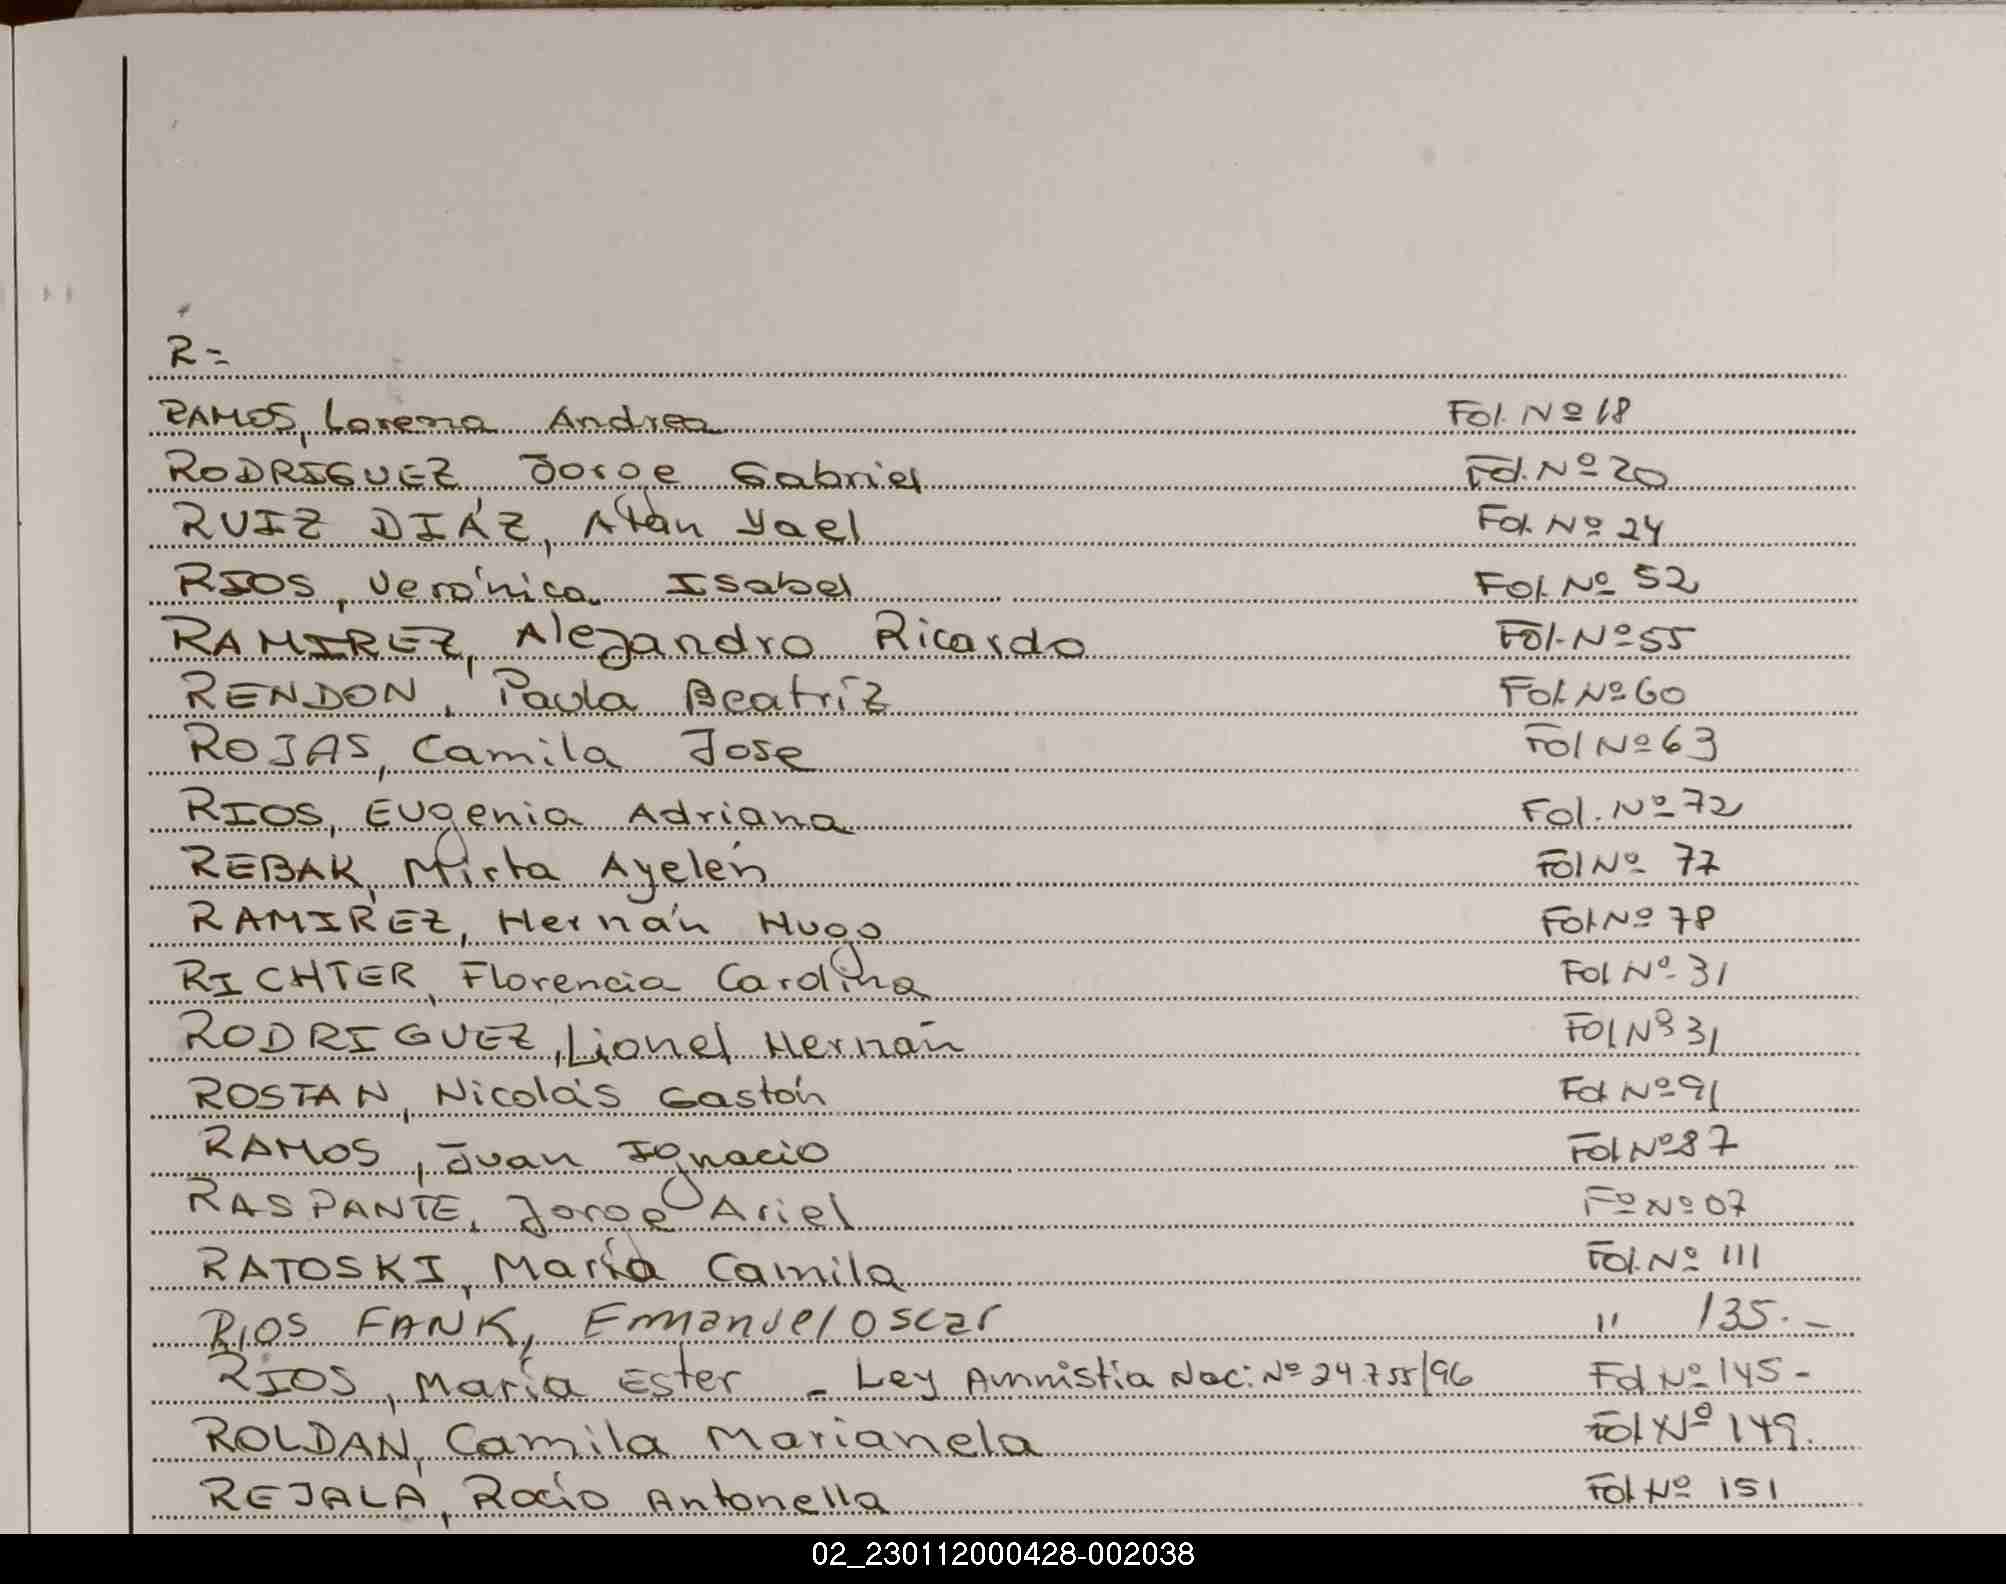 R=
RAMOS, Lorena Andrea Fol. Nº 18
RODRIGUEZ Jorge Gabriel Fol. Nº 20
RUIZ DIÁZ, Alan Yael Fol. Nº 24
RIOS, Verónica Isabel Fol. Nº 52
RAMIREZ, Alejandro Ricardo Fol. Nº 55
RENDON, Paula Beatríz Fol. Nº 60
ROJAS, Camila Jose Fol Nº 63
RIOS, Eugenia Adriana Fol. Nº 72
REBAK, Mirta Ayelén Fol Nº 77
RAMIREZ, Hernán Hugo Fol. Nº 78
RICHTER, Florencia Carolina Fol Nº 31
RODRIGUEZ, Lionel Hernán Fol Nº 31
ROSTAN, Nicolás Gastón Fol Nº 91
RAMOS, Juan Ignacio Fol Nº 87
RASPANTE, Jorge Ariel Fº Nº 07
RATOSKI, María Camila Fol. Nº 111
RIOS FANK, Emmanuel Oscar " 135.-
RIOS, María Ester - Ley Amnistia Nac: Nº 24755/96 Fol Nº 145-
ROLDAN, Camila Marianela Fol Nº 149.
REJALA, Rocío Antonella Fol. Nº 151
02_230112000428-002038